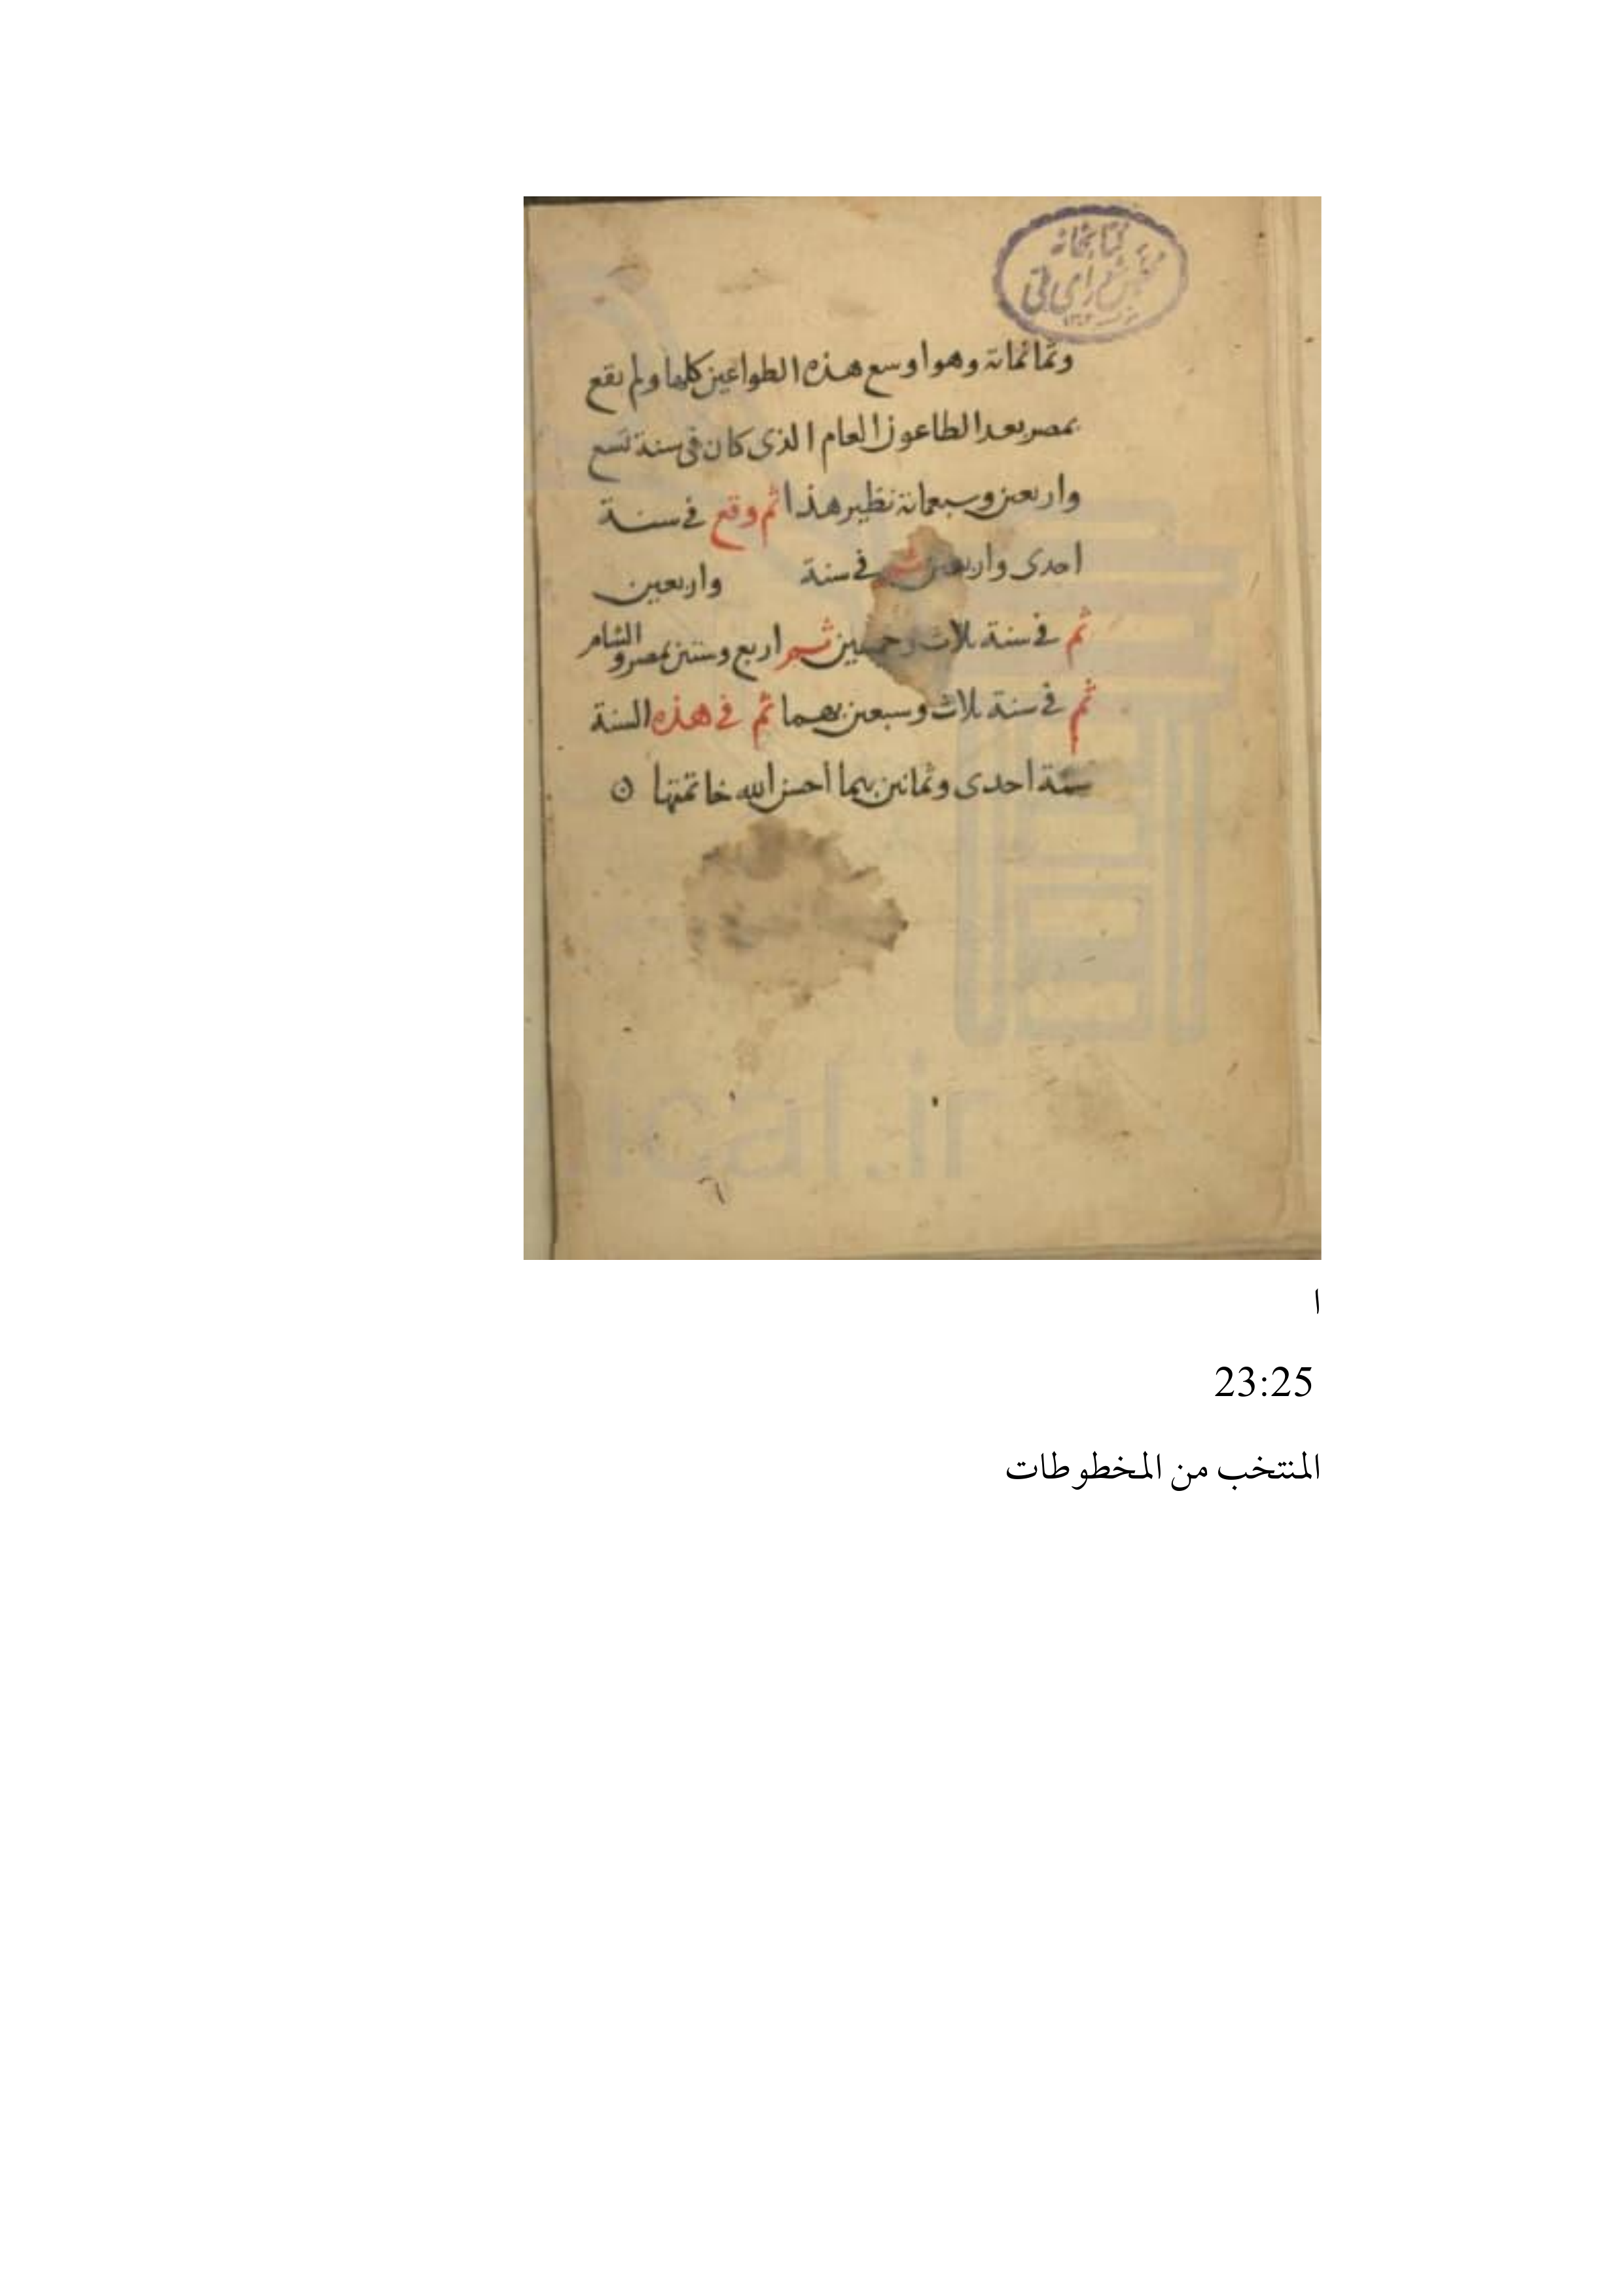 كتابخانه
مجلس شورای ملی
وثمانماية وهو اوسع هذه الطواعين كلها ولم يقع
بمصر بعد الطاعون العام الذى كان فى سنة تسع
واربعين وسبعماية نظير هذا ثم وقع فى سنة
احدى واربعين ثم فى سنة واربعين
ثم فى سنة ثلاث وخمسين ثم اربع وستين بمصر والشام
ثم فى سنة ثلاث وسبعين بهما ثم فى هذه السنة
سنة احدى وثمانين بهما أحسن الله خاتمتها ن
ical.ir
٦
ا
23:25
المنتخب من المخطوطات